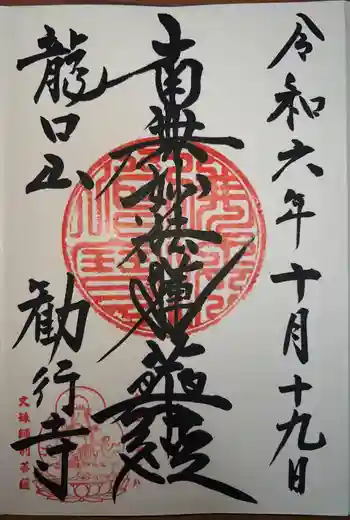 令和六年十月十九日
南無妙法蓮華經
龍口山
勧行寺
文殊師利菩薩